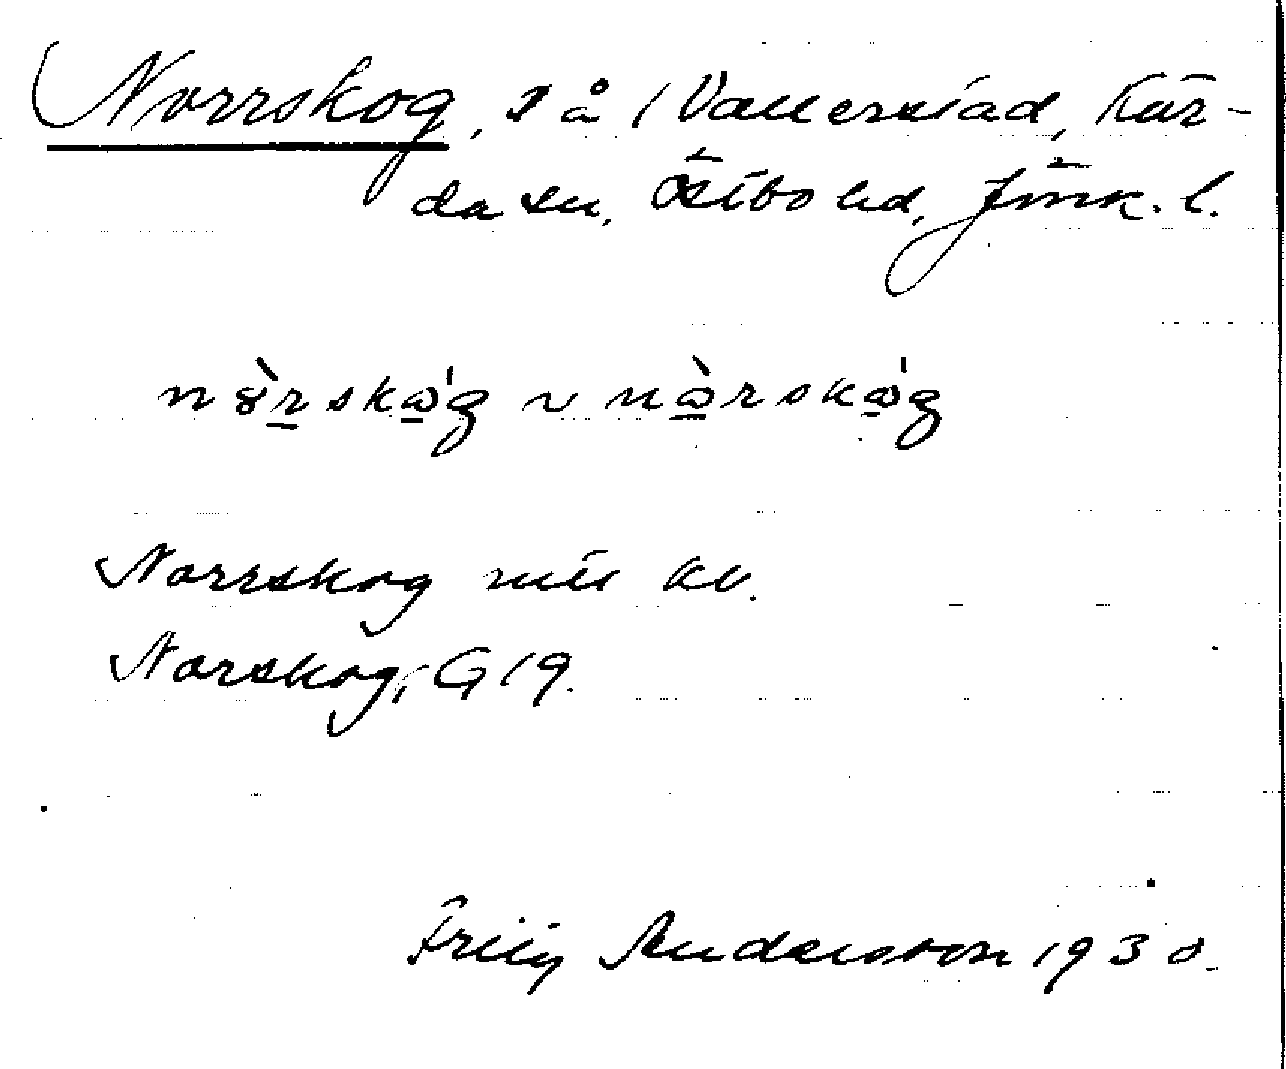 Norrskog, s å / Vallerstad, Kär-
da sn, Östbo hd, Jönk. l.
nɤ̀rskɷ́g ~ nɷ̀rskɷ́g
Norrskog mtl kv.
Norskog, G 19.
Fritz Andersson 1930.